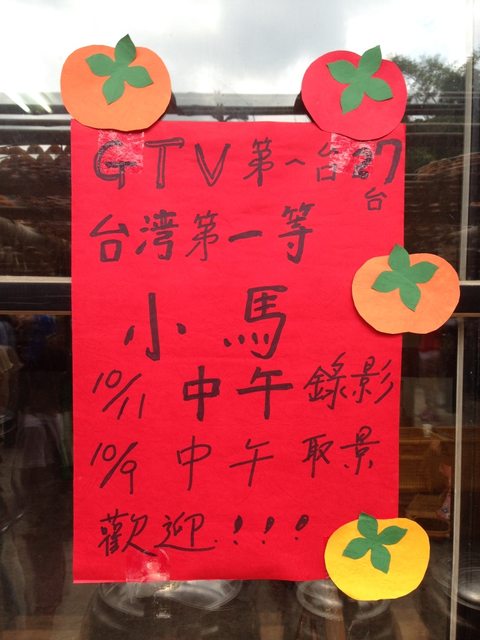 GTV第一台27台
台湾第一等
小馬
10/11 中午 錄影
10/9 中午 取景
歡迎.!!!